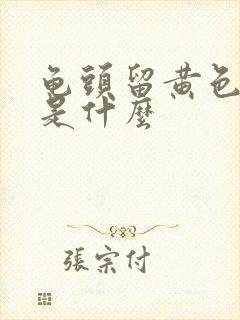 龟頭留黄色
是什麽
張宗付